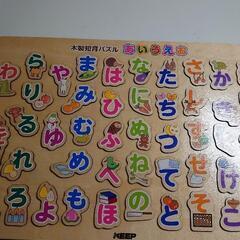 木製知育パズル あいうえお
かけこ
さしすせそ
たちつてと
なにぬねの
はひふへほ
まみむめも
やゆよ
らりるれろ
わ
KEEP